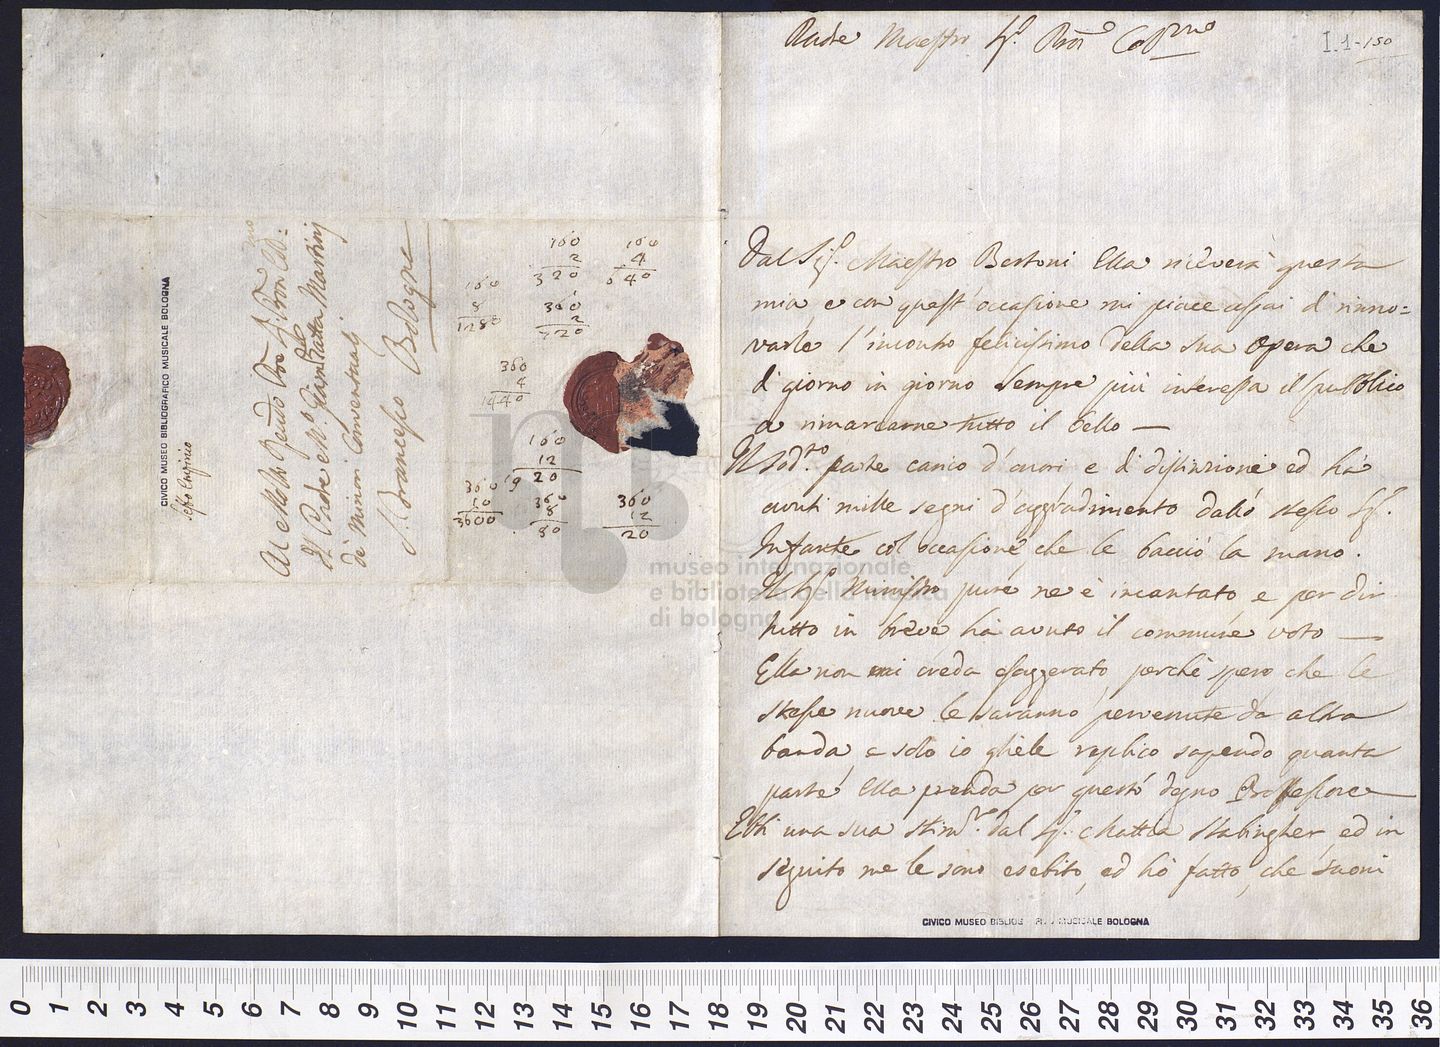 Padre Maestro Sig.r Pron Colmo
I.1-150
Dal Sig.r Maestro Bertoni Ella riceverà questa
mia e con quest'occasione mi piace assai di rinno=
varle l'incontro felicissimo della sua Opera che
di giorno in giorno sempre più interessa il pubblico
a rimarcarne tutto il bello —
Il sod.to parte carico d'onori e di distinzione ed hà
avuti mille segni d'aggradimento dallo stesso Sig.r
Infante col occasione che le bacciò la mano.
Il Sig.r Ministro pure ne è incantato, e per dir
tutto in breve hà avuto il commune voto —
Ella non mi creda esaggerato, perchè spero che le
stesse nuove le saranno pervenute da altra
banda, e solo io ghiele replico sapendo quanta
parte Ella prenda per questo degno Professore
Ebbi una sua stim.ma dal Sig.r Mattia Stabingher, ed in
seguito me le sono esebito, ed hò fatto, che suoni
CIVICO MUSEO BIBLIOGRAFICO MUSICALE BOLOGNA
Al Molto Rendo Pre Pron Colmo
Il Padre M.ro Giambatta Martini
de' Minori Conventuali
S. Francesco Bologna
CIVICO MUSEO BIBLIOGRAFICO MUSICALE BOLOGNA
160
2
320
160
4
640
160
8
1280
360
2
720
360
4
1440
160
12
20
360
10
3600
19
360
8
80
360
12
20
museo internazionale
e biblioteca della musica
di bologna
0 1 2 3 4 5 6 7 8 9 10 11 12 13 14 15 16 17 18 19 20 21 22 23 24 25 26 27 28 29 30 31 32 33 34 35 36